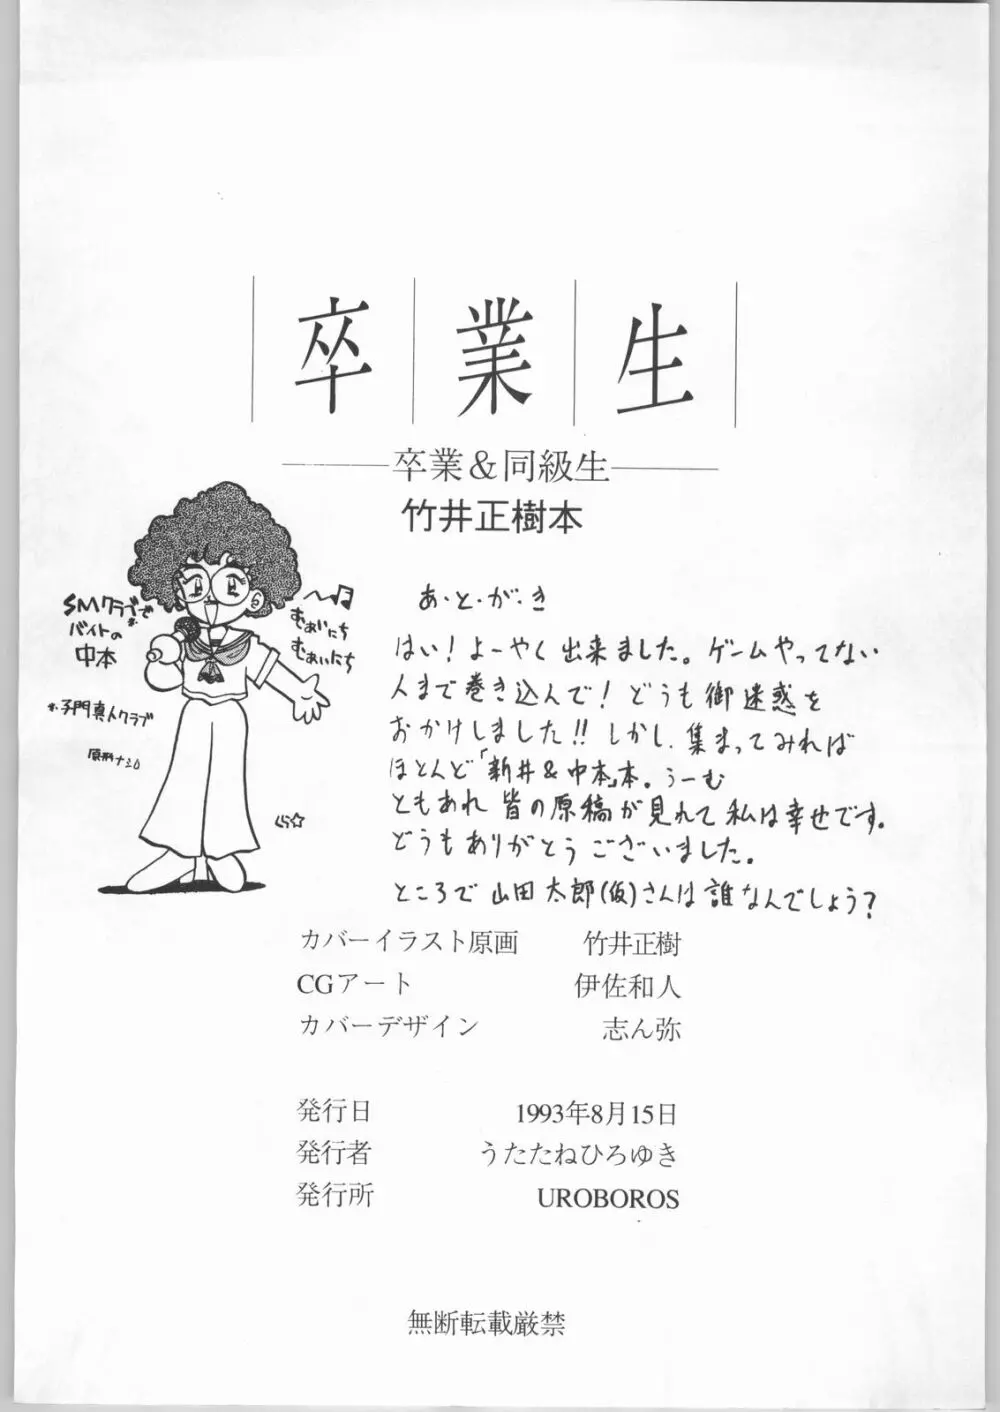 卒業生
卒業＆同級生
竹井正樹本
SMクラブで※
バイトの
中本
※子門真人クラブ
原形ナシ
〜♪
むぁいにち
むぁいにち
くら☆
あ・と・が・き
はい！よーやく出来ました。ゲームやってない
人まで巻き込んで！どうも御迷惑を
おかけしました!!しかし、集まってみれば
ほとんど「新井＆中本」本。うーむ
ともあれ皆の原稿が見れて私は幸せです。
どうもありがとうございました。
ところで山田太郎(仮)さんは誰なんでしょう？
カバーイラスト原画 竹井正樹
CGアート 伊佐和人
カバーデザイン 志ん弥
発行日 1993年8月15日
発行者 うたたねひろゆき
発行所 UROBOROS
無断転載厳禁